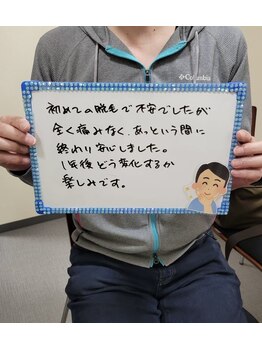 Columbia
初めての脱毛で不安でしたが
全く痛みなく、あっという間に
終わり安心しました。
1年後どう変化するか
楽しみです。